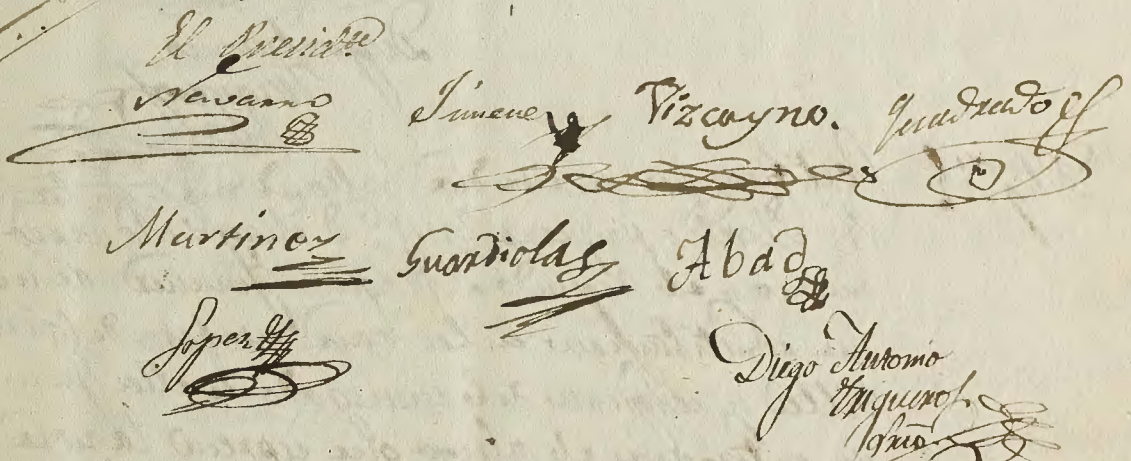 El Presid.te
Navarro Ximenez Vizcayno. Quadrado
Martinez Guardiola Abad
Lopez
Diego Antonio
Trigueros
Srio